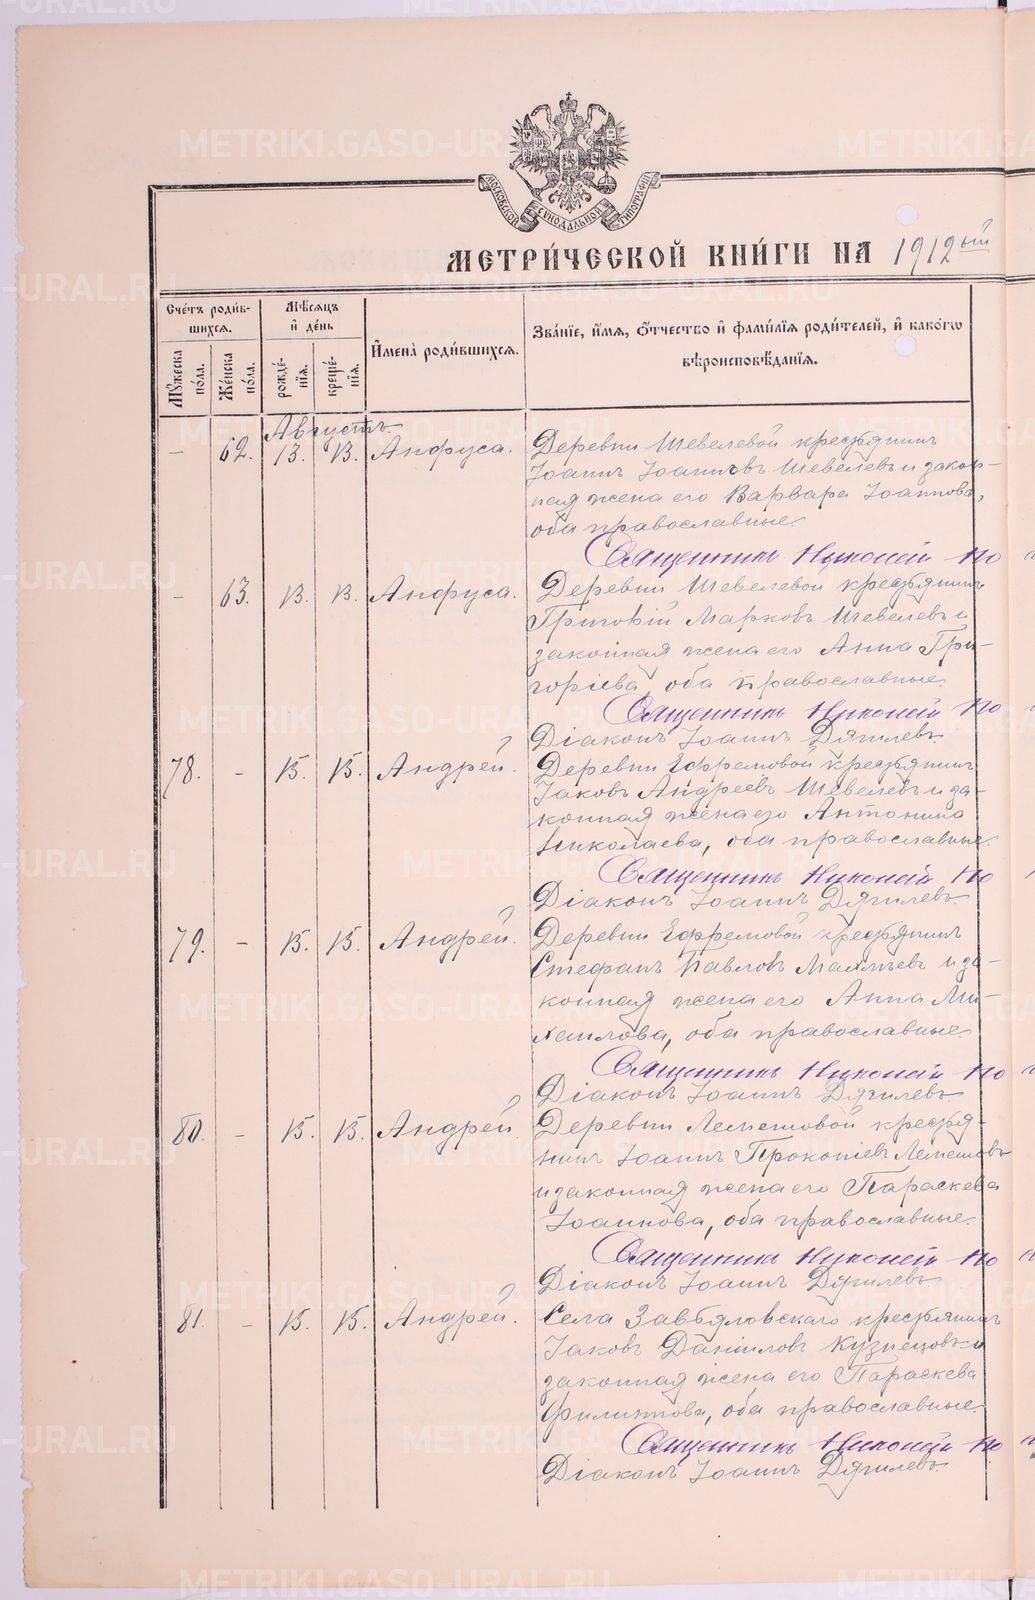 МОСКОВСКОЙ СѴНОДАЛЬНОЙ ТИПОГРАФІИ
МЕТРИ́ЧЕСКОЙ КНИ́ГИ НА 1912ый
Сче́тъ роди́в-
шихся.
Мѣ́сяцъ
и҆ де́нь
И҆мена̀ роди́вшихся.
Зва́нїе, и҆́мя, ѻ҆́тчество и҆ фами́лїя роди́телей, и҆ како́гѡ
вѣроисповѣ́данїя.
Мꙋ́жеска
по́ла.
Же́нска
по́ла.
рожде́-
нїя.
креще́-
нїя.
Августъ
— 62. 13. 13. Анфуса. Деревни Шевелевой крестьянинъ
Іоаннъ Іоанновъ Шевелевъ и закон-
ная жена его Варвара Іоаннова,
оба православные.
Священникъ Николай По
— 63. 13. 13. Анфуса. Деревни Шевелевой крестьянинъ
Григорій Марковъ Шевелевъ и
законная жена его Анна Гри-
горіева, оба православные.
Священникъ Николай По
Діаконъ Іоаннъ Дягилевъ
78. — 15. 15. Андрей. Деревни Ефремовой крестьянинъ
Іаковъ Андреевъ Шевелевъ и за-
конная жена его Антонина
Николаева, оба православные.
Священникъ Николай По
Діаконъ Іоаннъ Дягилевъ
79. — 15. 15. Андрей. Деревни Ефремовой крестьянинъ
Стефанъ Павловъ и за-
конная жена его Анна Ми-
хаилова, оба православные.
Священникъ Николай По
Діаконъ Іоаннъ Дягилевъ
80. — 15. 15. Андрей. Деревни Лемешовой крестья-
нинъ Іоаннъ Прокопіевъ Лемешовъ
и законная жена его Параскева
Іоаннова, оба православные.
Священникъ Николай По
Діаконъ Іоаннъ Дягилевъ
81. — 15. 15. Андрей. Села Завьяловскаго крестьянинъ
Іаковъ Даніиловъ Кузнецовъ и
законная жена его Параскева
Филиппова, оба православные.
Священникъ Николай По
Діаконъ Іоаннъ Дягилевъ
METRIKI.GASO-URAL.RU